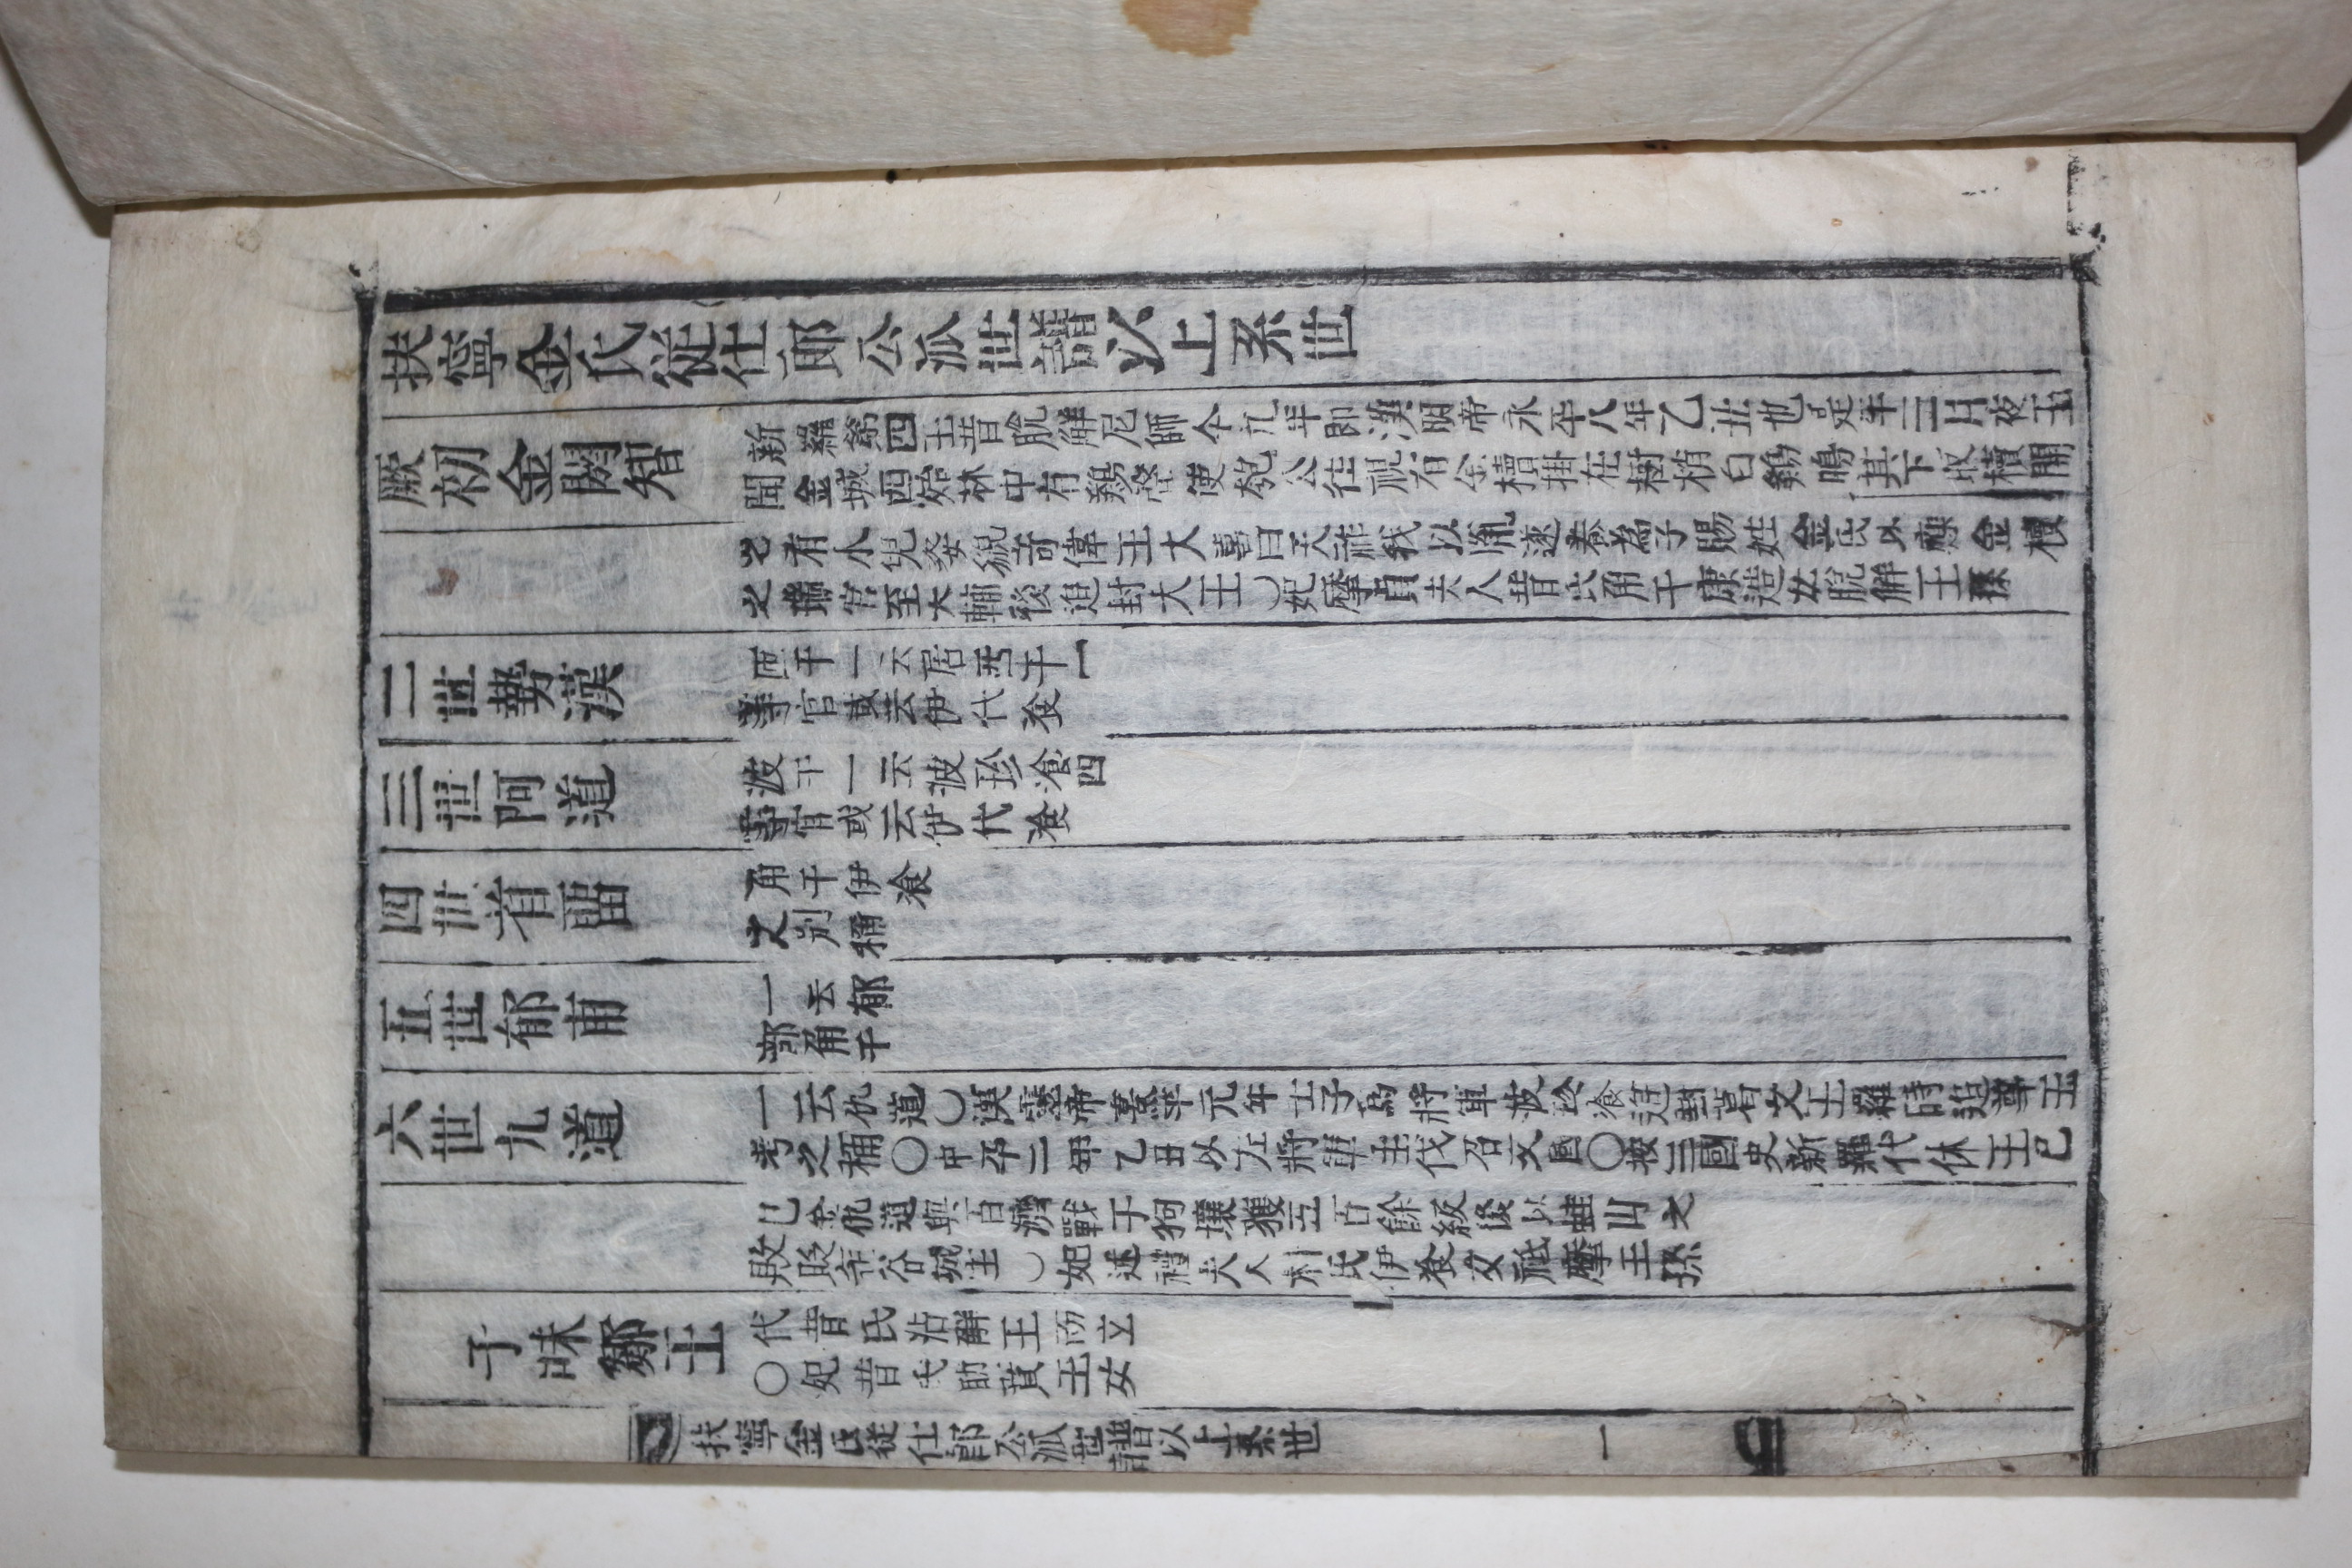 扶寧金氏從仕郎公派世譜以上系世
厥初金閼智
新羅第四王昔脫解尼師今九年即漢明帝永平八年乙丑也是年三月夜王
聞金城西始林中有鷄聲使瓠公往視有金櫝掛在樹梢白鷄鳴其下取櫝開
之有小兒姿貌奇偉王大喜曰天祚我以胤遂養為子賜姓金氏以應金櫝
之瑞官至大輔後追封大王○妃摩貞夫人昔氏角干康造女脫解王孫
二世勢漢
匝干一云居西干一
等官或云伊代飡
三世阿道
波干一云波珍飡四
等官或云伊代飡
四世首留
角干伊飡
之別稱
五世郁甫
一云郁
部角干
六世九道
一云仇道○漢靈帝熹平元年士子為將軍波珍飡追封葛文王羅時追尊王
考之稱○中平二年乙丑以左將軍主伐召文國○按三國史新羅代休王己
巳金仇道與百濟戰于狗壤獲五百餘級後以蛙山之
敗貶缶谷城主○妃述禮夫人朴氏伊飡女祗摩王孫
子味鄒王
代昔氏沾解王而立
○妃昔氏助賁王女
扶寧金氏從仕郎公派世譜以上系世
一